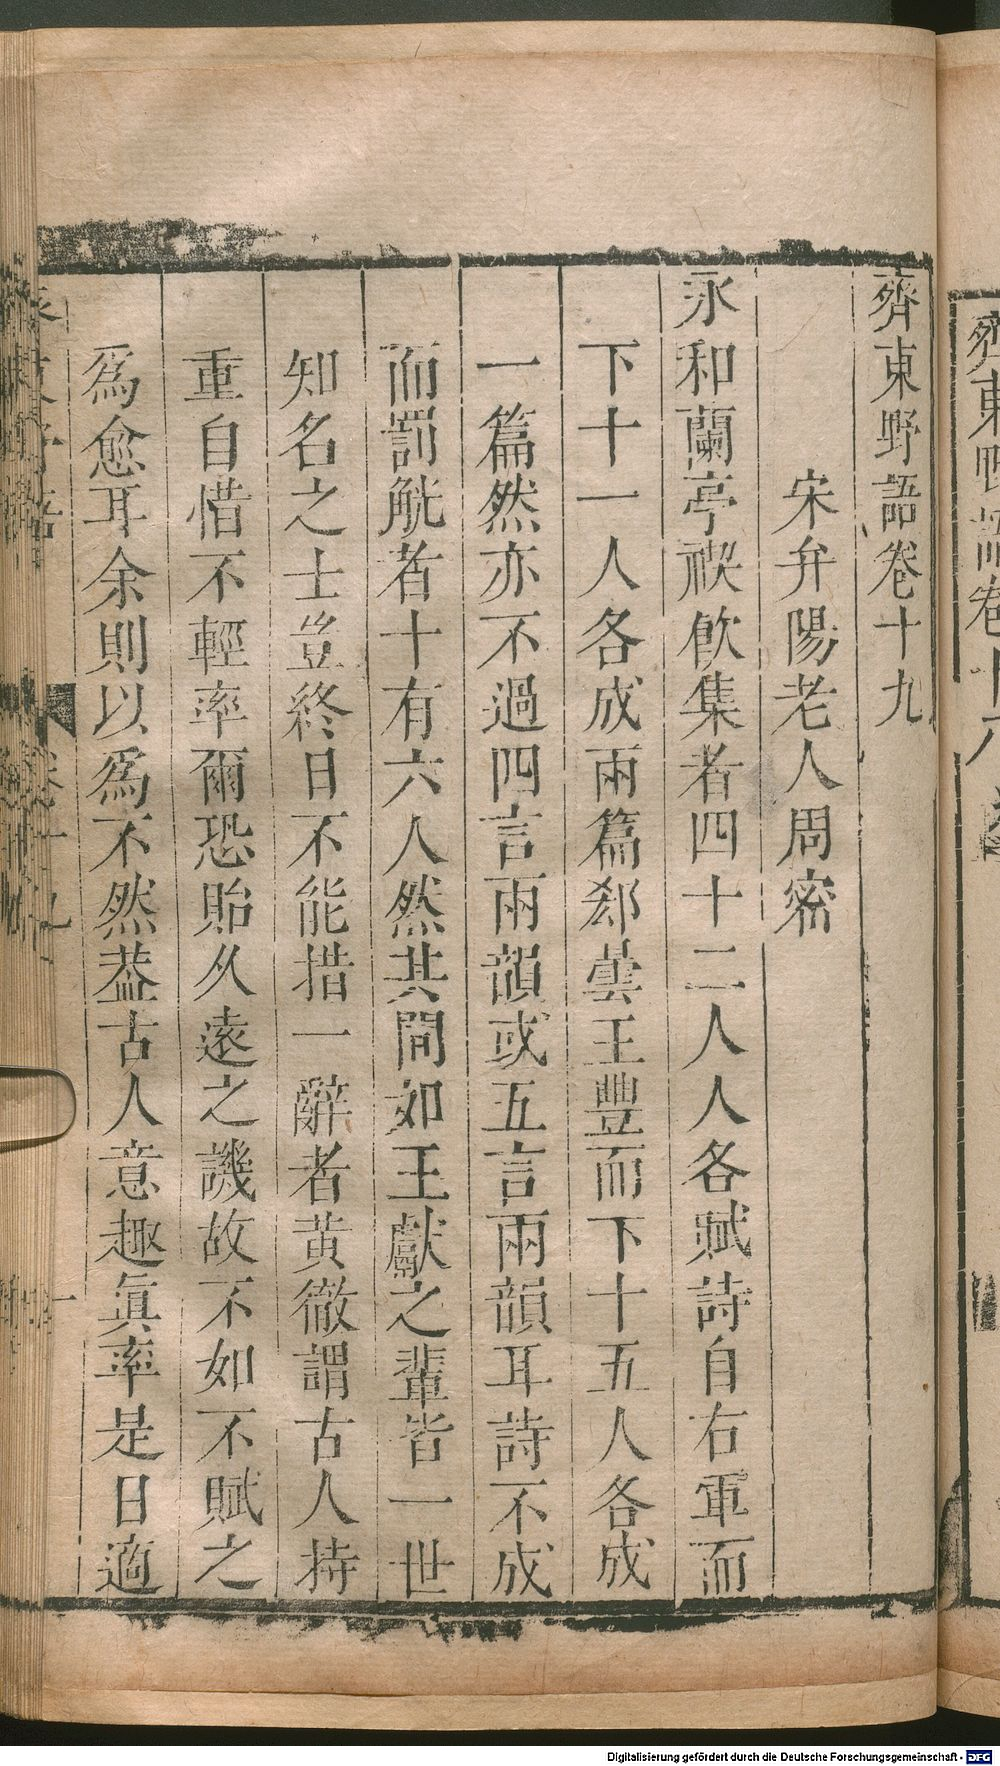 齊東野語卷十九
宋弁陽老人周密
永和蘭亭禊飲集者四十二人人各賦詩自右軍而
下十一人各成兩篇郄曇王豐而下十五人各成
一篇然亦不過四言兩韻或五言兩韻耳詩不成
而罰觥者十有六人然其間如王獻之輩皆一世
知名之士豈終日不能措一辭者黄徹謂古人持
重自惜不輕率爾恐貽久遠之譏故不如不賦之
爲愈耳余則以爲不然葢古人意趣眞率是日適
Digitalisierung gefördert durch die Deutsche Forschungsgemeinschaft - DFG